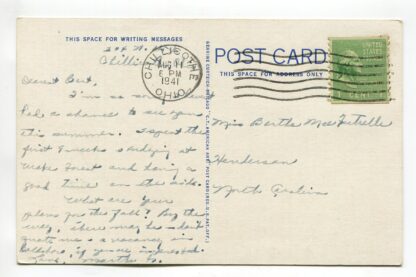 THIS SPACE FOR WRITING MESSAGES
Chilli
Dearest Bert,
I'm so sorry I haven't
had a chance to see you
this summer. I spent the
first 5 weeks studying at
Wake Forest and having a
good time on the side.
What are your
plans for the fall? By the
way, there may be
a vacancy in
if you're interested.
Love, Martha
GENUINE CURTEICH-CHICAGO "C.T. AMERICAN ART" POST CARD (REG. U.S. PAT. OFF.)
POST CARD
THIS SPACE FOR ADDRESS ONLY
CHILLICOTHE
AUG 14
6 PM
1941
OHIO
UNITED
STATES
1 CENT 1
Miss Bertha
Henderson
North Carolina